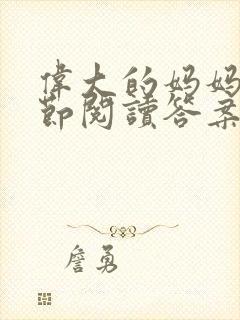 偉大的妈妈
節閱讀答案
詹勇